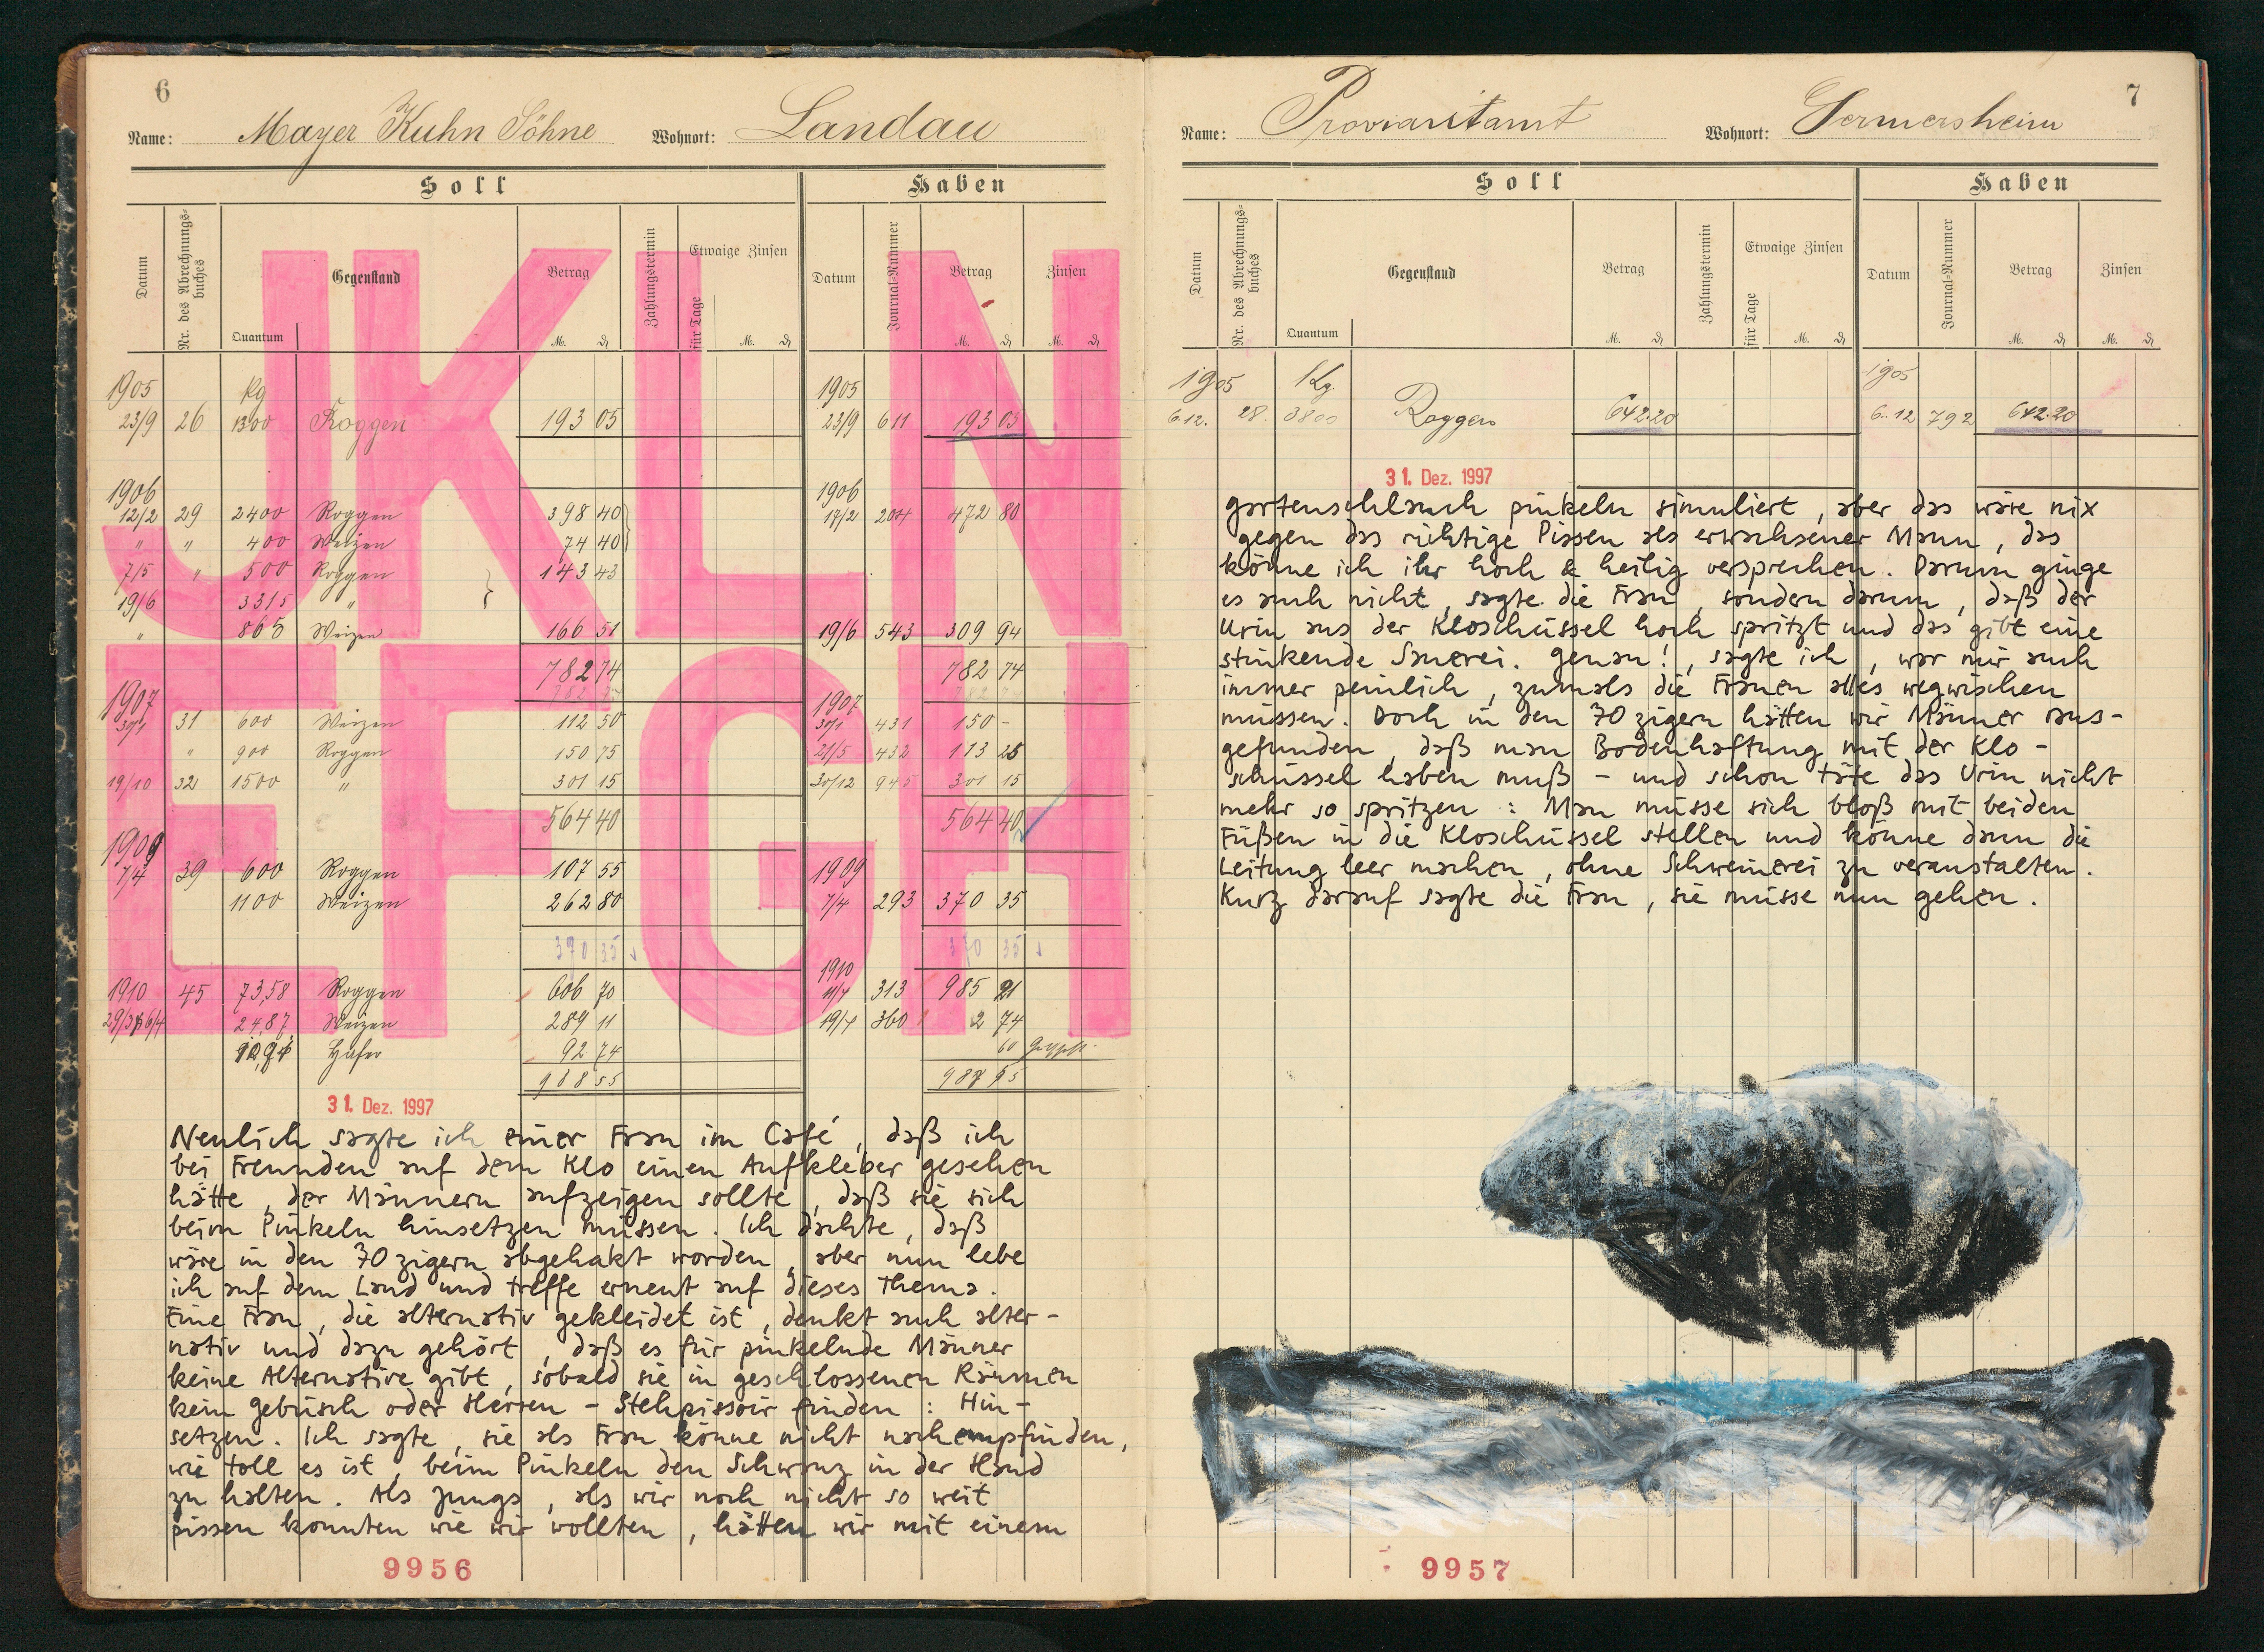 6
Name: Mayer Kuhn Söhne Wohnort: Landau
Soll Haben
Datum Nr. des Abrechnungs-buches Gegenstand Quantum Betrag M. ₰ Zahlungstermin Etwaige Zinsen für Tage M. ₰ Datum Journal-Nummer Betrag M. ₰ Zinsen M. ₰
JKLN
EFGH
1905 Kg 1905
23/9 26 1300 Roggen 193 05 23/9 611 193 05
1906 1906
12/2 29 2400 Roggen 398 40 17/2 204 472 80
" " 400 Weizen 74 40
7/5 " 500 Roggen 143 43
19/6 3315 "
" 865 Weizen 166 51 19/6 543 309 94
782 74 782 74
1907 1907
30/1 31 600 Weizen 112 50 30/1 431 150 -
" 900 Roggen 150 75 21/5 432 113 25
19/10 32 1500 " 301 15 30/12 945 301 15
564 40 564 40
1909 1909
7/4 39 600 Roggen 107 55
1100 Weizen 262 80 7/4 293 370 35
370 35 370 35
1910 1910
45 73,58 Roggen 606 70 11/4 313 985 21
24,87 Weizen 289 11 19/4 360 2 74
Hafer 92 74 60
988 55
31. Dez. 1997
Neulich sagte ich einer Frau im Café, daß ich
bei Freunden auf dem Klo einen Aufkleber gesehen
hätte, der Männern aufzeigen sollte, daß sie sich
beim Pinkeln hinsetzen müssen. Ich dachte, daß
wäre in den 70zigern abgehakt worden, aber nun lebe
ich auf dem Land und treffe erneut auf dieses Thema.
Eine Frau, die alternativ gekleidet ist, denkt auch alter-
nativ und dazu gehört, daß es für pinkelnde Männer
keine Alternative gibt, sobald sie in geschlossenen Räumen
kein Gebüsch oder Herren-Stehpissoir finden: Hin-
setzen. Ich sagte, sie als Frau könne nicht nachempfinden,
wie toll es ist, beim Pinkeln den Schwanz in der Hand
zu halten. Als Jungs, als wir noch nicht so weit
pissen konnten wie wir wollten, hätten wir mit einem
9956
7
Name: Proviantamt Wohnort: Germersheim
Soll Haben
Datum Nr. des Abrechnungs-buches Gegenstand Quantum Betrag M. ₰ Zahlungstermin Etwaige Zinsen für Tage M. ₰ Datum Journal-Nummer Betrag M. ₰ Zinsen M. ₰
1905 Kg. 1905
6.12. 28. 3800 Roggen 642.20 6.12 792 642.20
31. Dez. 1997
Gartenschlauch pinkeln simuliert, aber das wäre nix
gegen das richtige Pissen als erwachsener Mann, das
könne ich ihr hoch & heilig versprechen. Darum ginge
es auch nicht, sagte die Frau, sondern darum, daß der
Urin aus der Kloschüssel hoch spritzt und das gibt eine
stinkende Sauerei. Genau!, sagte ich, war mir auch
immer peinlich, zumals die Frauen alles wegwischen
müssen. Doch in den 70zigern hätten wir Männer raus-
gefunden, daß man Bodenhaftung mit der Klo-
schüssel haben muß - und schon täte das Urin nicht
mehr so spritzen: Man müsse sich bloß mit beiden
Füßen in die Kloschüssel stellen und könne dann die
Leitung leer machen, ohne Schweinerei zu veranstalten.
Kurz darauf sagte die Frau, sie müsse nun gehen.
9957